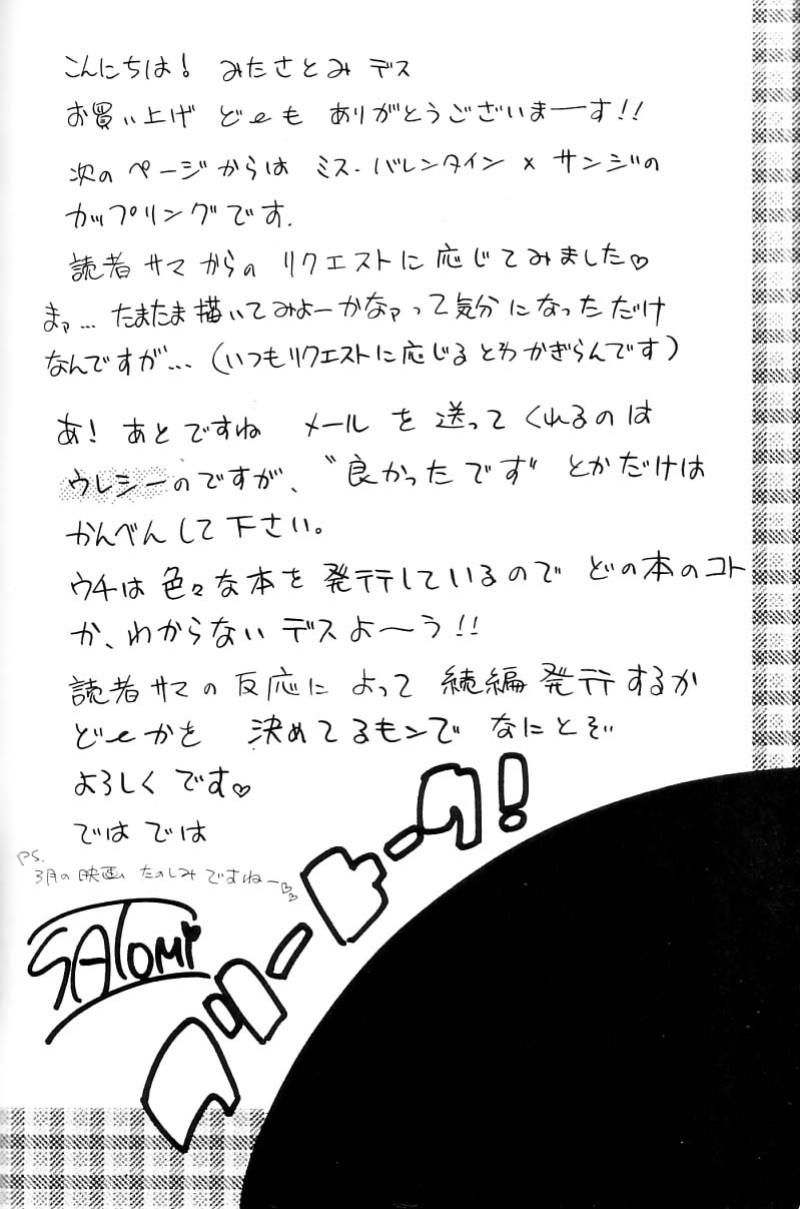 こんにちは! みたさとみ デス
お買い上げ どーも ありがとうございまーす!!
次の ページからは ミス・バレンタイン × サンジの
カップリングです.
読者サマからの リクエストに応じてみました♡
まァ… たまたま描いてみよーかなァって気分になっただけ
なんですが…(いつもリクエストに応じるとわかぎらんです)
あ! あとですね メールを送ってくれるのは
ウレシーのですが、“良かったです”とかだけは
かんべんして下さい。
ウチは色々な本を発行しているので どの本のコト
か、わからないデスよ〜う!!
読者サマの反応によって 続編発行するか
どーかを 決めてるモンで なにとぞ
よろしくです♡
ではでは
PS.
3月の映画 たのしみですねー♡♡
SATOMI
フリートーク!